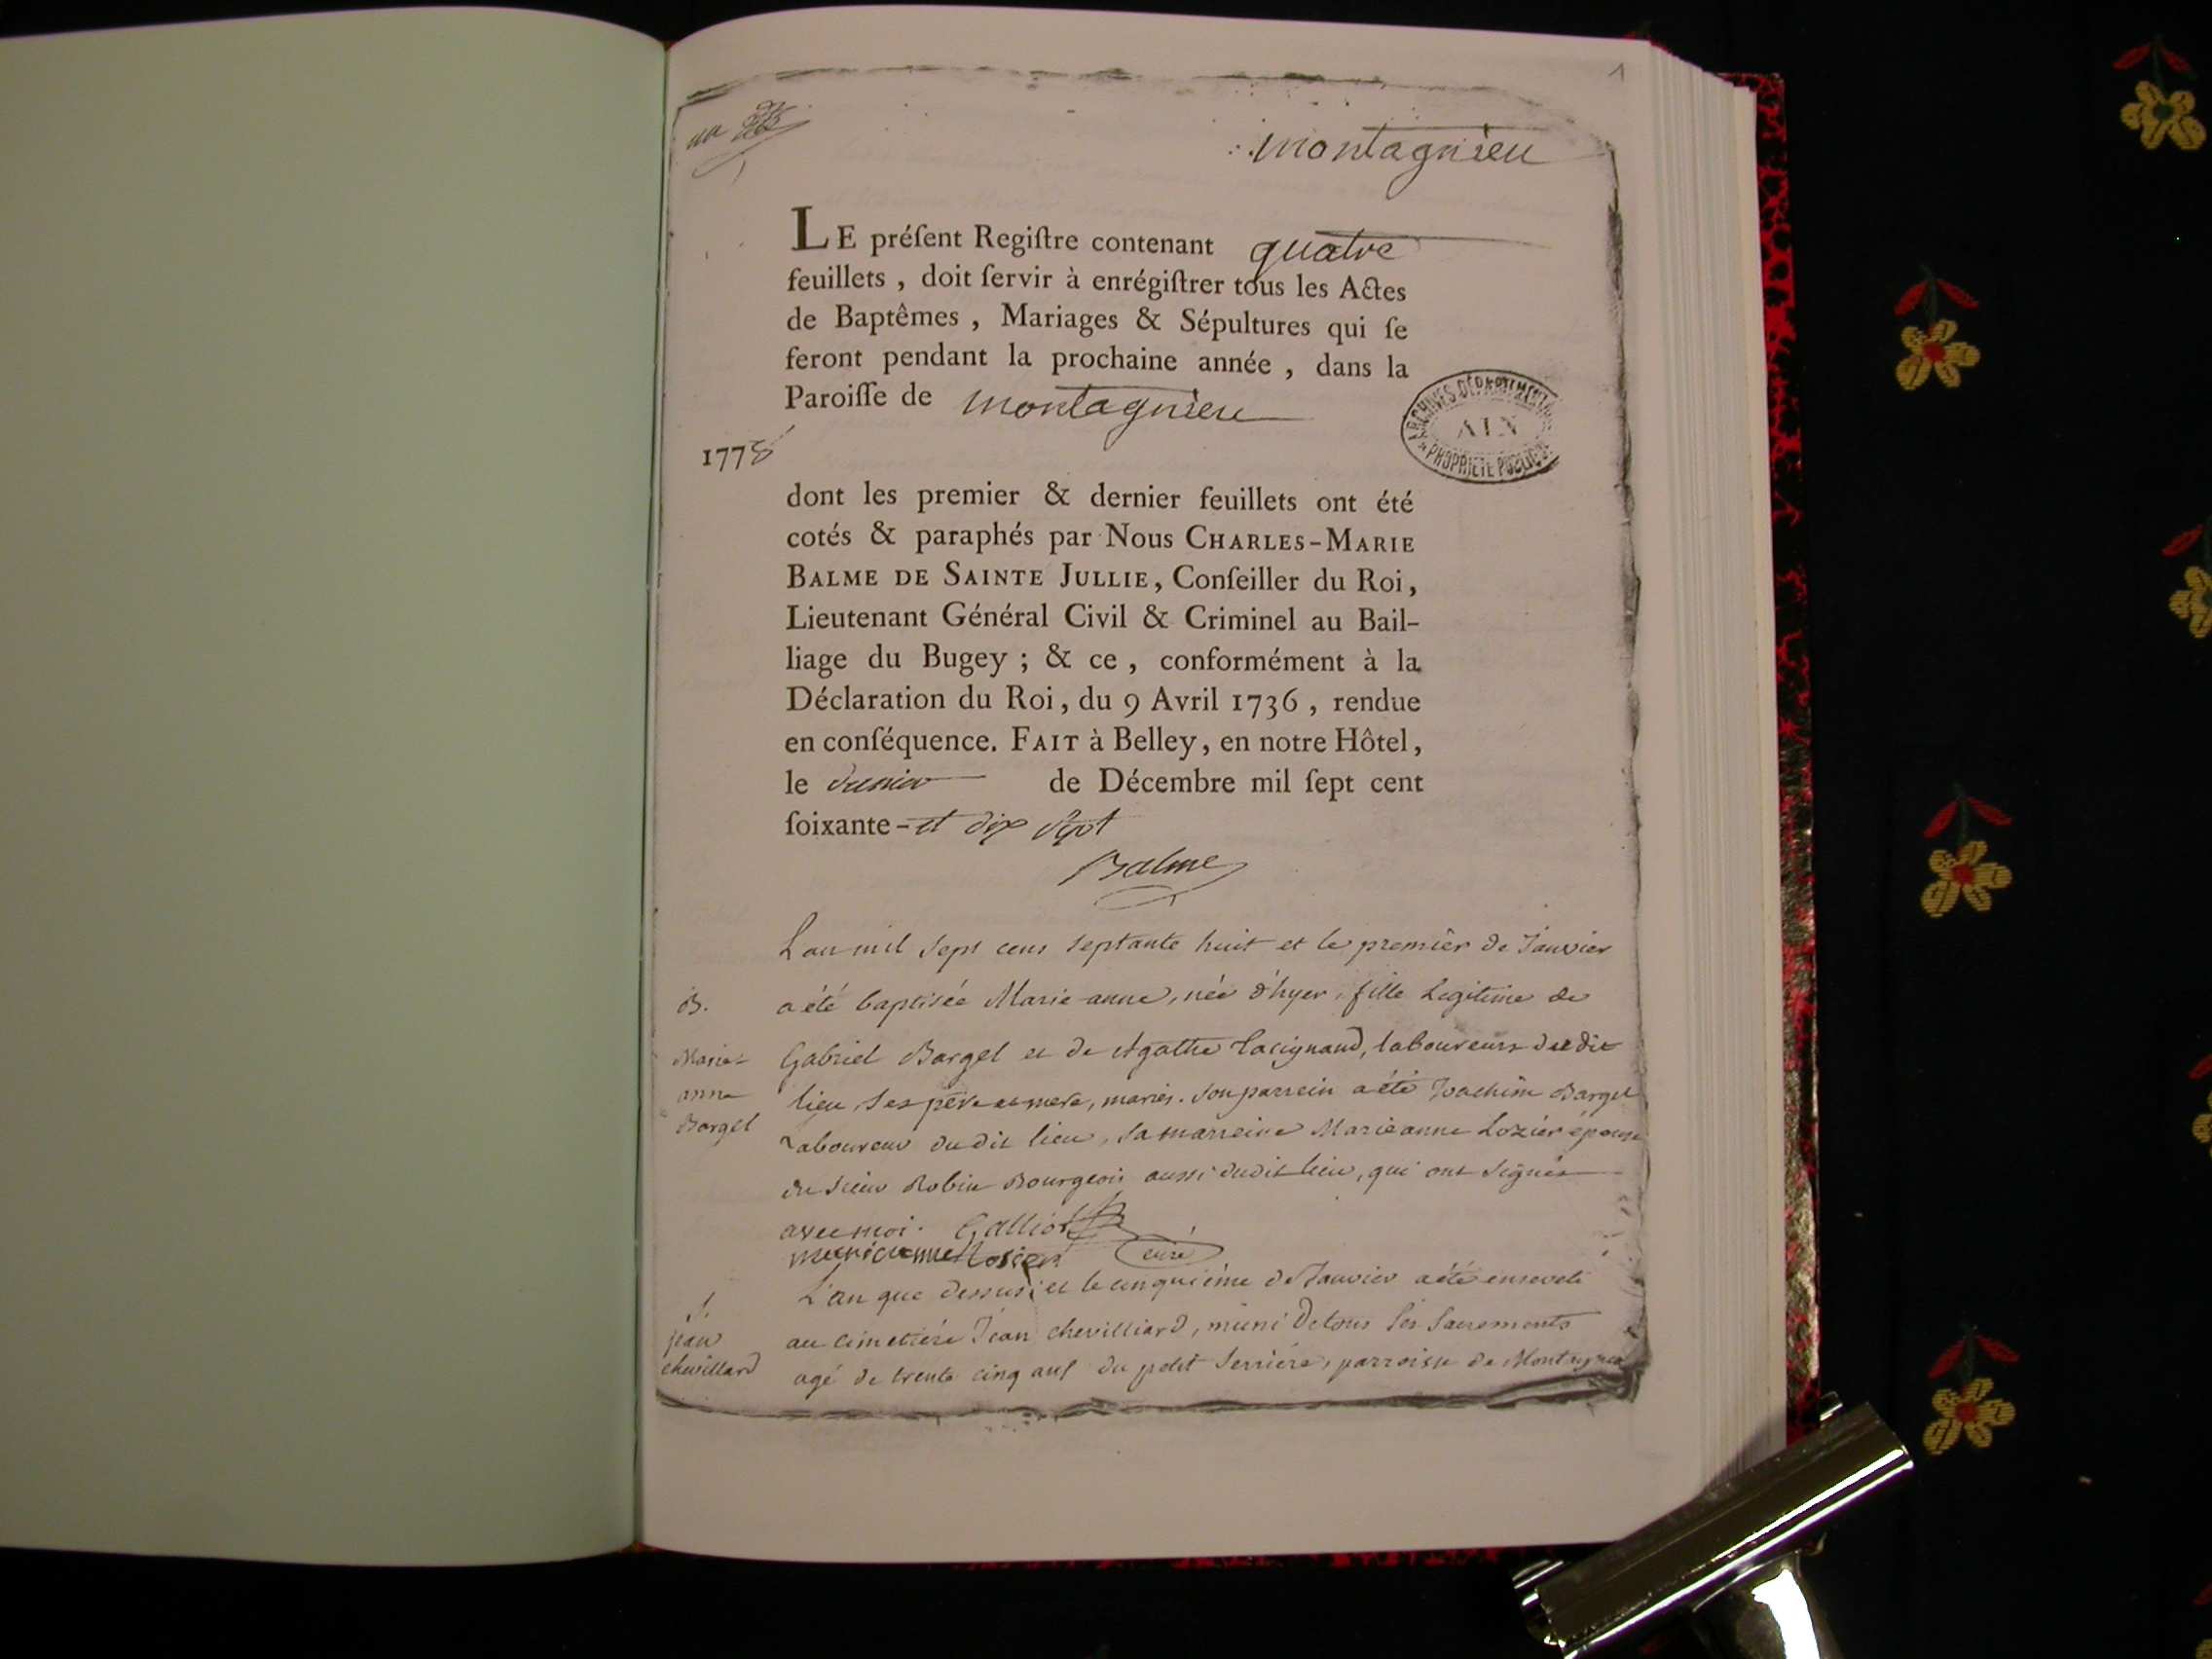 1
un
montagnieu
LE préſent Regiſtre contenant quatre
feuillets , doit ſervir à enrégiſtrer tous les Actes
de Baptêmes , Mariages & Sépultures qui ſe
feront pendant la prochaine année , dans la
Paroiſſe de montagnieu
ARCHIVES DÉPARTEMENTALES
AIN
* PROPRIÉTÉ PUBLIQUE
1778
dont les premier & dernier feuillets ont été
cotés & paraphés par Nous CHARLES-MARIE
BALME DE SAINTE JULLIE, Conſeiller du Roi,
Lieutenant Général Civil & Criminel au Bail-
liage du Bugey ; & ce , conformément à la
Déclaration du Roi, du 9 Avril 1736 , rendue
en conſéquence. FAIT à Belley, en notre Hôtel,
le dernier de Décembre mil ſept cent
ſoixante-et dix sept
Balme
L'an mil sept cens septante huit et le premièr de Janvier
B. a été baptisée Marie-anne, née d'hyer, fille Legitime de
Marie- Gabriel Bargel et de Agathe , laboureurs du dit
anne lieu, ses père et mere, mariés. son parrein a été Joachim Bargel
Bargel Laboureur du dit lieu, sa marreine Marie anne Lozièr épouse
du sieur Robin Bourgeois aussi dudit lieu, qui ont signés
avec moi. Galliot
marie anne Rosier curé
L'an que dessus, et le cinquième de Janvier a été enseveli
S. au cimetière Jean chevilliard, muni de tous les Sacrements
jean
chevillard agé de trente cinq ans du petit Serrière, parroisse de Montagnieu